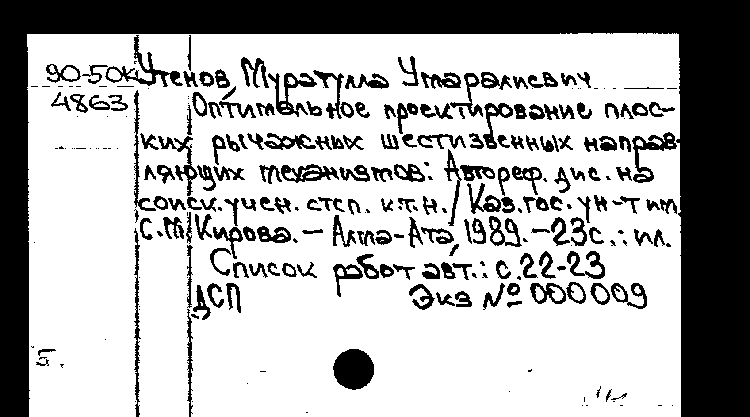 90-50к Утенов, Муратулла Умаралиевич
4863 Оптимальное проектирование плос-
ких рычажных шестизвенных направ-
ляющих механизмов: Автореф. дис. на
соиск. учен. степ. к.т.н. / Каз. гос. ун-т им.
С.М. Кирова. – Алма-Ата, 1989. – 23с.: ил.
Список работ авт.: с. 22-23
ДСП Экз № 000009
Б.